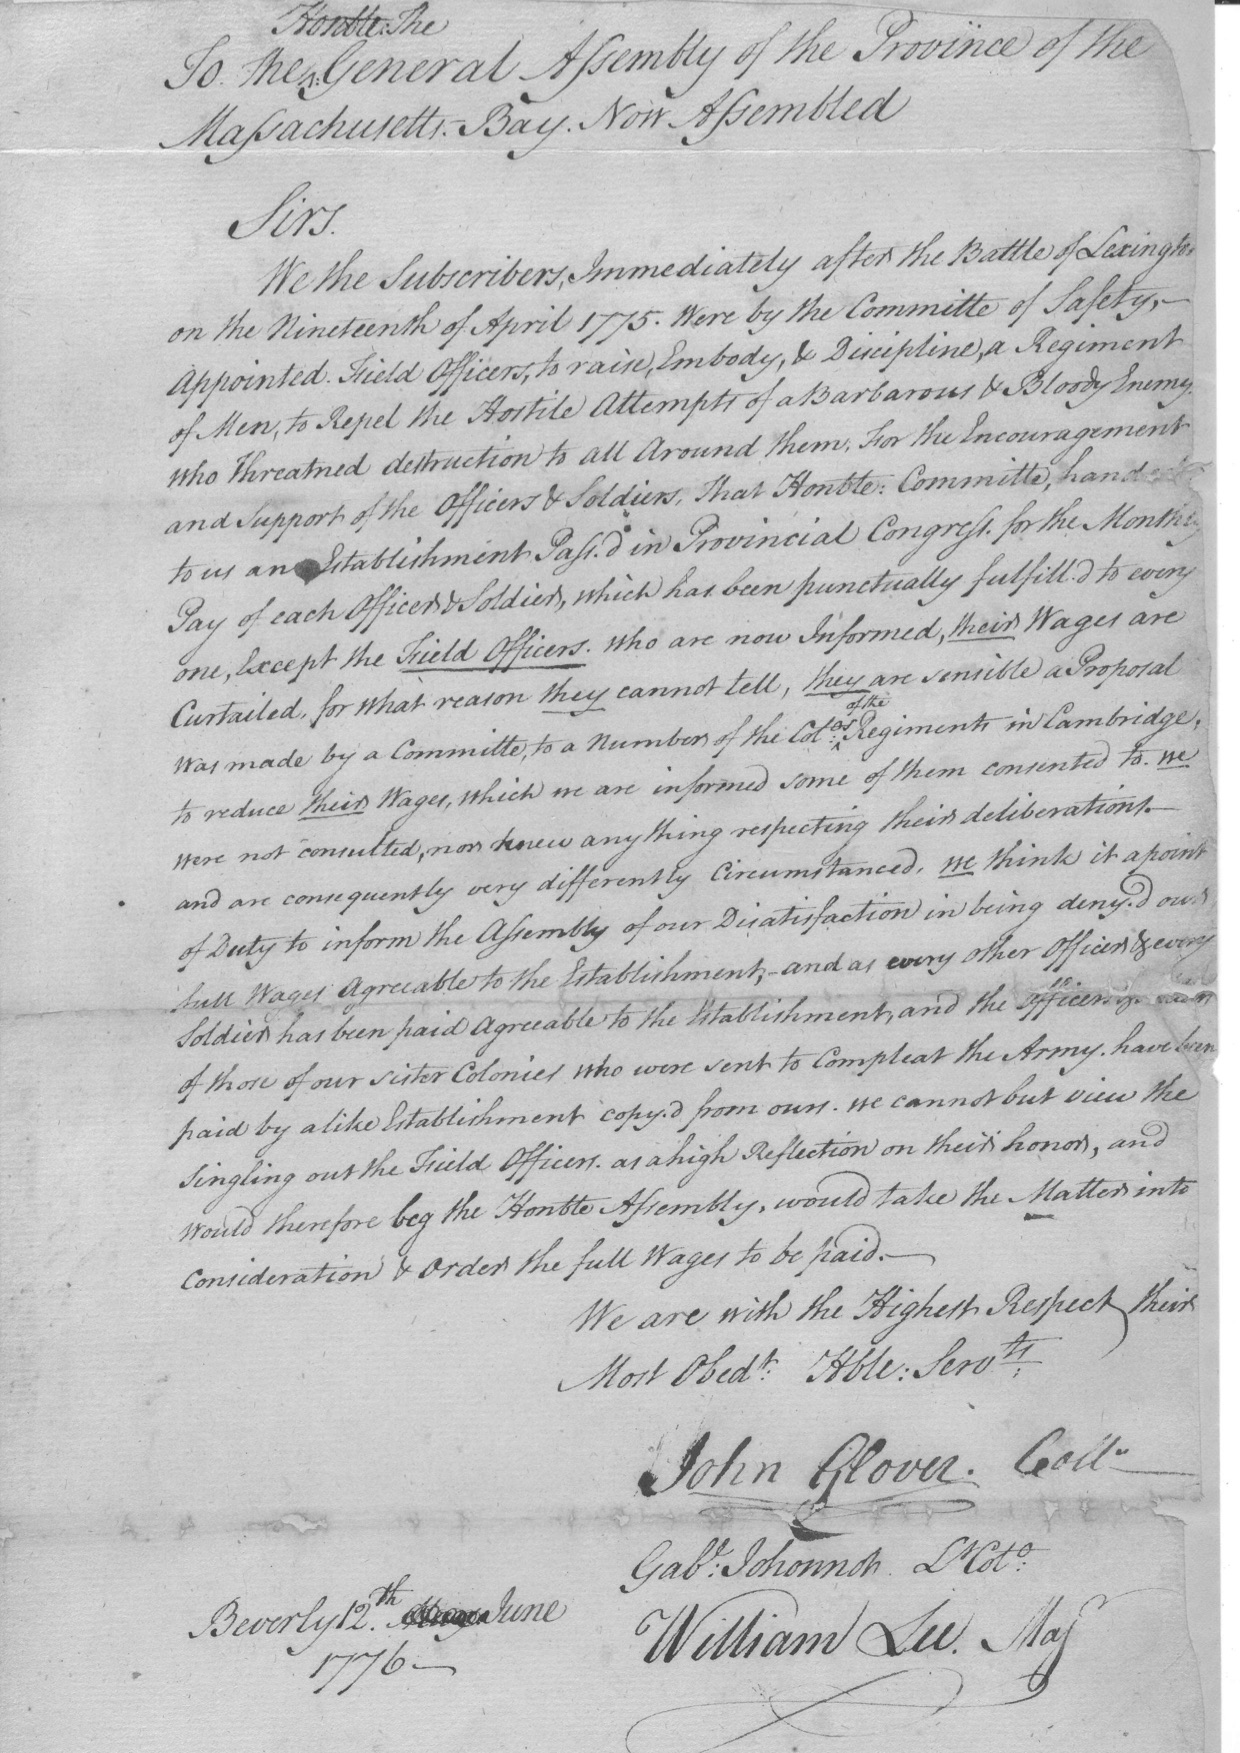 Honble: The
To the General Assembly of the Province of the
Massachusetts-Bay. Now Assembled
Sirs.
We the Subscribers, Immediately after the Battle of Lexington
on the Nineteenth of April 1775. Were by the Committe of Safety,-
Appointed Field Officers, to raise, Embody, & Discipline, a Regiment
of Men, to Repel the Hostile Attempts of a Barbarous & Bloody Enemy.
who threatned destruction to all Around them. For the Encouragement
and Support of the Officers & Soldiers, That Honble: Committe, handed
to us an Establishment Pass.d in Provincial Congress. for the Monthly
Pay of each Officer & Soldier, which has been punctually fulfill.d to every
one, Except the Field Officers. who are now Informed, their Wages are
Curtailed, for what reason they cannot tell, they are sensible a Proposal
of the
was made by a Committe, to a Number of the Colos: Regiments in Cambridge,
to reduce their Wages, which we are informed some of them consented to. we
were not consulted, nor knew any thing respecting their deliberations.-
and are consequently very differently Circumstanced. we think it a point
of Duty to inform the Assembly of our Disatisfaction in being deny.d our
full Wages Agreeable to the Establishment,- and as every other Officer & every
Soldier has been paid Agreeable to the Establishment, and the Officers
of those of our sister Colonies who were sent to Compleat the Army. have been
paid by a like Establishment copy.d from ours. we cannot but view the
singling out the Field Officers. as a high Reflection on their honor, and
would therefore beg the Honble Assembly, would take the Matter into
Consideration & Order the full Wages to be paid.-
We are with the Highest Respect their
Most Obedt: Hble: Servts:
John Glover. Coll
Gabl: Johonnot. Lt Colo:
Beverly 12.th June
William Lee. Maj
1776-